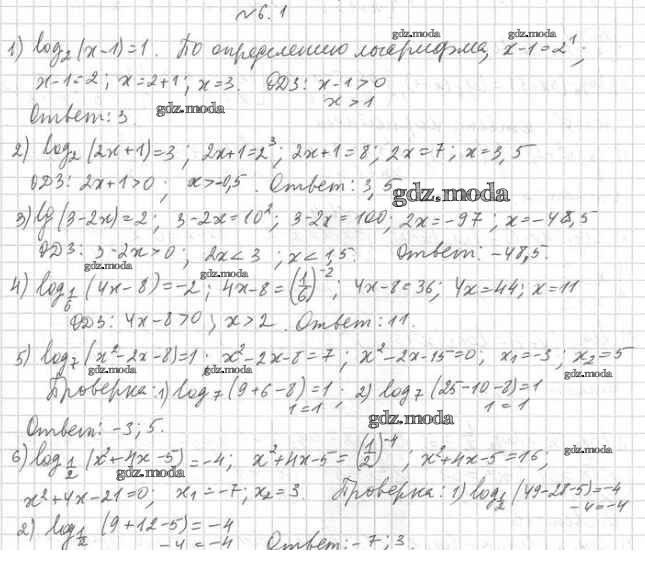 №6.1
gdz.moda gdz.moda
1) log₂(x-1)=1. По определению логарифма, x-1=2¹;
x-1=2; x=2+1; x=3. ОДЗ: x-1>0
x>1
gdz.moda
Ответ: 3.
2) log₂(2x+1)=3; 2x+1=2³; 2x+1=8; 2x=7; x=3,5
ОДЗ: 2x+1>0; x>-0,5. Ответ: 3,5
gdz.moda
3) lg(3-2x)=2; 3-2x=10²; 3-2x=100; 2x=-97; x=-48,5
ОДЗ: 3-2x>0; 2x<3; x<1,5. Ответ: -48,5.
gdz.moda gdz.moda
4) log_{1/6}(4x-8)=-2; 4x-8=(1/6)⁻²; 4x-8=36; 4x=44; x=11
ОДЗ: 4x-8>0; x>2. Ответ: 11.
5) log₇(x²-2x-8)=1; x²-2x-8=7; x²-2x-15=0; x₁=-3; x₂=5
gdz.moda gdz.moda gdz.moda
Проверка: 1) log₇(9+6-8)=1; 2) log₇(25-10-8)=1
1=1 1=1
gdz.moda
Ответ: -3; 5.
6) log_{1/2}(x²+4x-5)=-4; x²+4x-5=(1/2)⁻⁴; x²+4x-5=16;
gdz.moda gdz.moda
x²+4x-21=0; x₁=-7; x₂=3. Проверка: 1) log_{1/2}(49-28-5)=-4
-4=-4
2) log_{1/2}(9+12-5)=-4
-4=-4 Ответ: -7; 3.